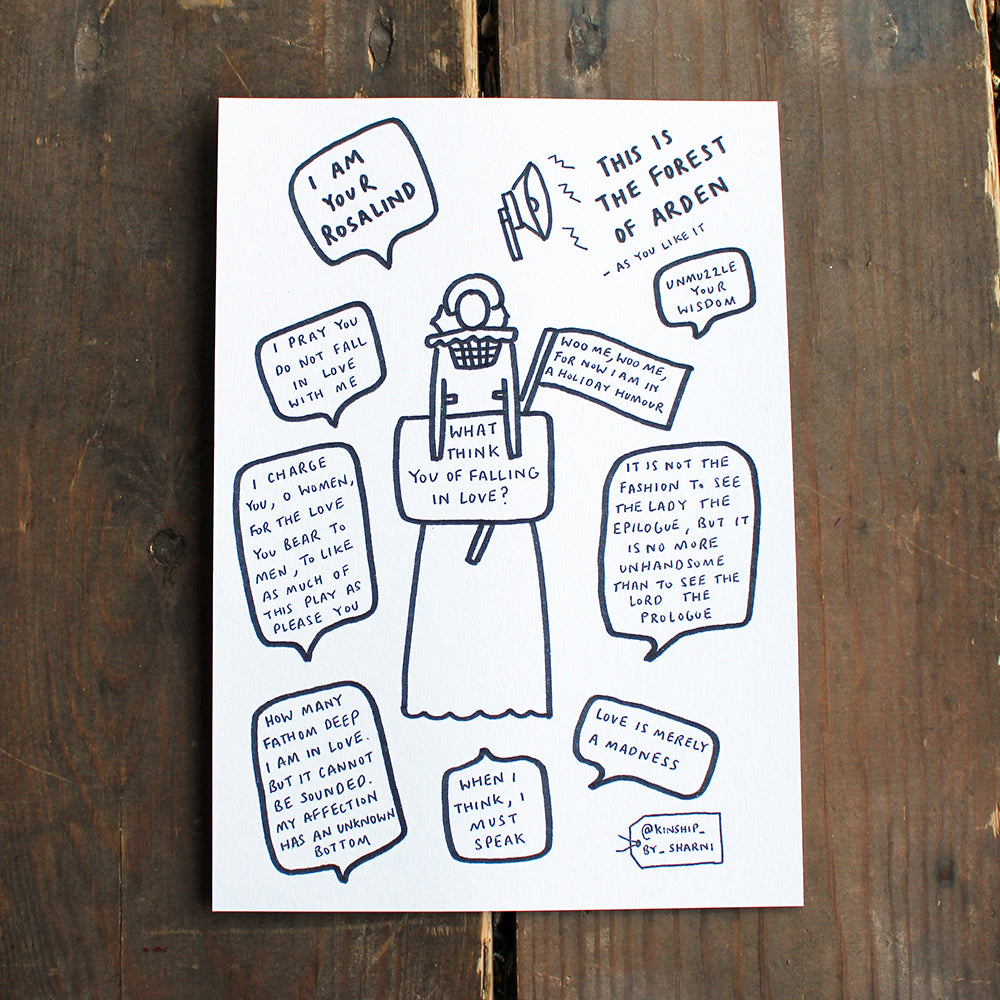 I AM
YOUR
ROSALIND
THIS IS
THE FOREST
OF ARDEN
- AS YOU LIKE IT
UNMUZZLE
YOUR
WISDOM
I PRAY YOU
DO NOT FALL
IN LOVE
WITH ME
WOO ME, WOO ME,
FOR NOW I AM IN
A HOLIDAY HUMOUR
WHAT
THINK
YOU OF FALLING
IN LOVE?
I CHARGE
YOU, O WOMEN,
FOR THE LOVE
YOU BEAR TO
MEN, TO LIKE
AS MUCH OF
THIS PLAY AS
PLEASE YOU
IT IS NOT THE
FASHION TO SEE
THE LADY THE
EPILOGUE, BUT IT
IS NO MORE
UNHANDSOME
THAN TO SEE THE
LORD THE
PROLOGUE
HOW MANY
FATHOM DEEP
I AM IN LOVE.
BUT IT CANNOT
BE SOUNDED.
MY AFFECTION
HAS AN UNKNOWN
BOTTOM
WHEN I
THINK, I
MUST
SPEAK
LOVE IS MERELY
A MADNESS
@KINSHIP_
BY_SHARNI